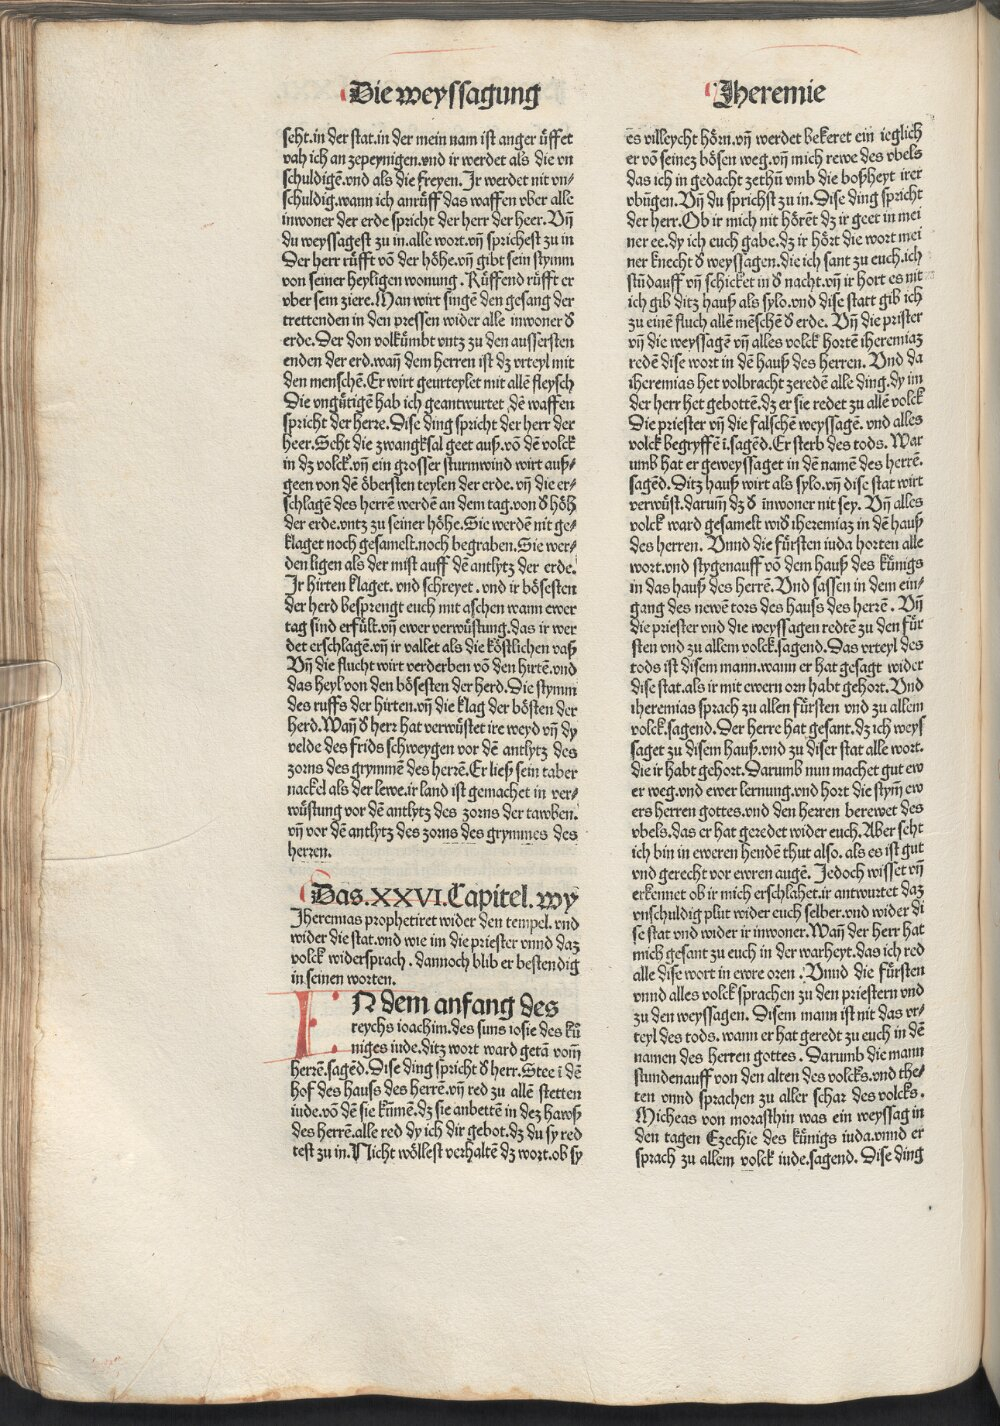 Die weyssagung
Jheremie
seht.in der stat.in der mein nam ist anger ůffet
vah ich an zepeynigen.vnd ir werdet als die vn
schuldigē.vnd als die freyen. Jr werdet nit vn⸗
schuldig.wann ich anrůff das waffen vber alle
inwoner der erde spricht der herr der heer. Vñ
du weyssagest zu in.alle wort.vñ sprichest zu in
Der herr růfft vō der höhe.vñ gibt sein stymm
von seiner heyligen wonung. Růffend růfft er
vber sein ziere.Man wirt singē den gesang der
trettenden in den pressen wider alle inwoner ð
erde.Der don volkůmbt vntz zu den aussersten
enden der erd.wañ dem herren ist dz vrteyl mit
den menschē.Er wirt geurteylet mit allē fleysch
Die vngůtigē hab ich geantwurtet dē waffen
spricht der herre. Dise ding spricht der herr der
heer.Seht die zwangksal geet auß.vō dē volck
in dz volck.vñ ein grosser sturmwind wirt auß⸗
geen von dē öbersten teylen der erde. vñ die er⸗
schlagē des herrē werdē an dem tag.von ð höh
der erde.vntz zu seiner höhe.Sie werdē nit ge⸗
klaget noch gesamelt.noch begraben.Sie wer⸗
den ligen als der mist auff dē antlytz der erde.
Jr hirten klaget. vnd schreyet . vnd ir bösesten
der herd besprengt euch mit aschen wann ewer
tag sind erfůlt.vñ ewer verwůstung.das ir wer
det erschlagē.vñ ir vallet als die köstlichen vaß
Vñ die flucht wirt verderben vō den hirtē.vnd
das heyl von den bösesten der herd.Die stymm
des ruffs der hirten.vñ die klag der bösten der
herd.Wañ ð herr hat verwůstet ire weyd vñ dy
velde des frids schweygen vor dē antlytz des
zorns des grymmē des herrē.Er ließ sein taber
nackel als der lewe.ir land ist gemachet in ver⸗
wůstung vor dē antlytz des zorns der tawben.
vñ vor dē antlytz des zorns des grymmes des
herren.
Das.XXVI.Capitel. wy
Jheremias prophetiret wider den tempel. vnd
wider die stat.vnd wie im die priester vnnd daz
volck widersprach . dannoch blib er bestendig
in seinen worten.
IN dem anfang des
reychs ioachim.des suns iosie des ků
niges iude.ditz wort ward getā vom̄
herrē.sagēd.Dise ding spricht ð herr.Stee ī dē
hof des hauss des herrē.vñ red zu allē stetten
iude.vō dē sie kůmē.dz sie anbettē in dez hawß
des herrē.alle red dy ich dir gebot.dz du sy red
test zu in.Nicht wöllest verhaltē dz wort.ob sy
es villeycht hörn.vñ werdet bekeret ein ieglich
er vō seinez bösen weg.vñ mich rewe des vbels
das ich in gedacht zethů vmb die boßheyt irer
vbūgen. Vñ du sprichst zu in. Dise ding spricht
der herr.Ob ir mich nit hörēt dz ir geet in mei
ner ee.dy ich euch gabe.dz ir hört die wort mei
ner knecht ð weyssagen.die ich sant zu euch.ich
stūdauff vñ schicket in ð nacht.vñ ir hort es nit
ich gib ditz hauß als sylo.vnd dise statt gib ich
zu einē fluch allē mēschē ð erde. Vñ die prister
vñ die weyssagē vñ alles volck hortē iheremiaz
redē dise wort in dē hauß des herren. Vnd da
iheremias het volbracht zeredē alle ding.dy im
der herr het gebottē.dz er sie redet zu allē volck
Die priester vñ die falschē weyssagē. vnd alles
volck begryffē ī.sagēd. Er sterb des tods. War
umb hat er geweyssaget in dē namē des herrē.
sagēd. Ditz hauß wirt als sylo.vñ dise stat wirt
verwůst.darum̄ dz ð inwoner nit sey. Vñ alles
volck ward gesamelt wið iheremiaz in dē hauß
des herren. Vnnd die fůrsten iuda horten alle
wort.vnd stygenauff vō dem hauß des kůnigs
in das hauß des herrē. Vnd sassen in dem ein⸗
gang des newē tors des hauss des herrē . Vñ
die priester vnd die weyssagen redtē zu den fůr
sten vnd zu allem volck.sagend.Das vrteyl des
tods ist disem mann.wann er hat gesagt wider
dise stat.als ir mit ewern orn habt gehort. Vnd
iheremias sprach zu allen fůrsten vnd zu allem
volck.sagend. Der herre hat gesant.dz ich weys
saget zu disem hauß.vnd zu diser stat alle wort.
die ir habt gehort.Darumb nun machet gut ew
er weg.vnd ewer lernung.vnd hort die stym̄ ew
ers herren gottes.vnd den herren berewet des
vbels.das er hat geredet wider euch.Aber seht
ich bin in eweren hendē thut also. als es ist gut
vnd gerecht vor ewren augē. Jedoch wisset vñ
erkennet ob ir mich erschlahet.ir antwurtet daz
vnschuldig plut wider euch selber.vnd wider di
se stat vnd wider ir inwoner.Wañ der herr hat
mich gesant zu euch in der warheyt.das ich red
alle dise wort in ewre oren . Vnnd die fůrsten
vnnd alles volck sprachen zu den priestern vnd
zu den weyssagen. Disem mann ist nit das vr⸗
teyl des tods. wann er hat geredt zu euch in dē
namen des herren gottes . Darumb die mann
stundenauff von den alten des volcks.vnd the⸗
ten vnnd sprachen zu aller schar des volcks.
Micheas von morasthin was ein weyssag in
den tagen Ezechie des kůnigs iuda.vnnd er
sprach zu allem volck iude.sagend. Dise ding